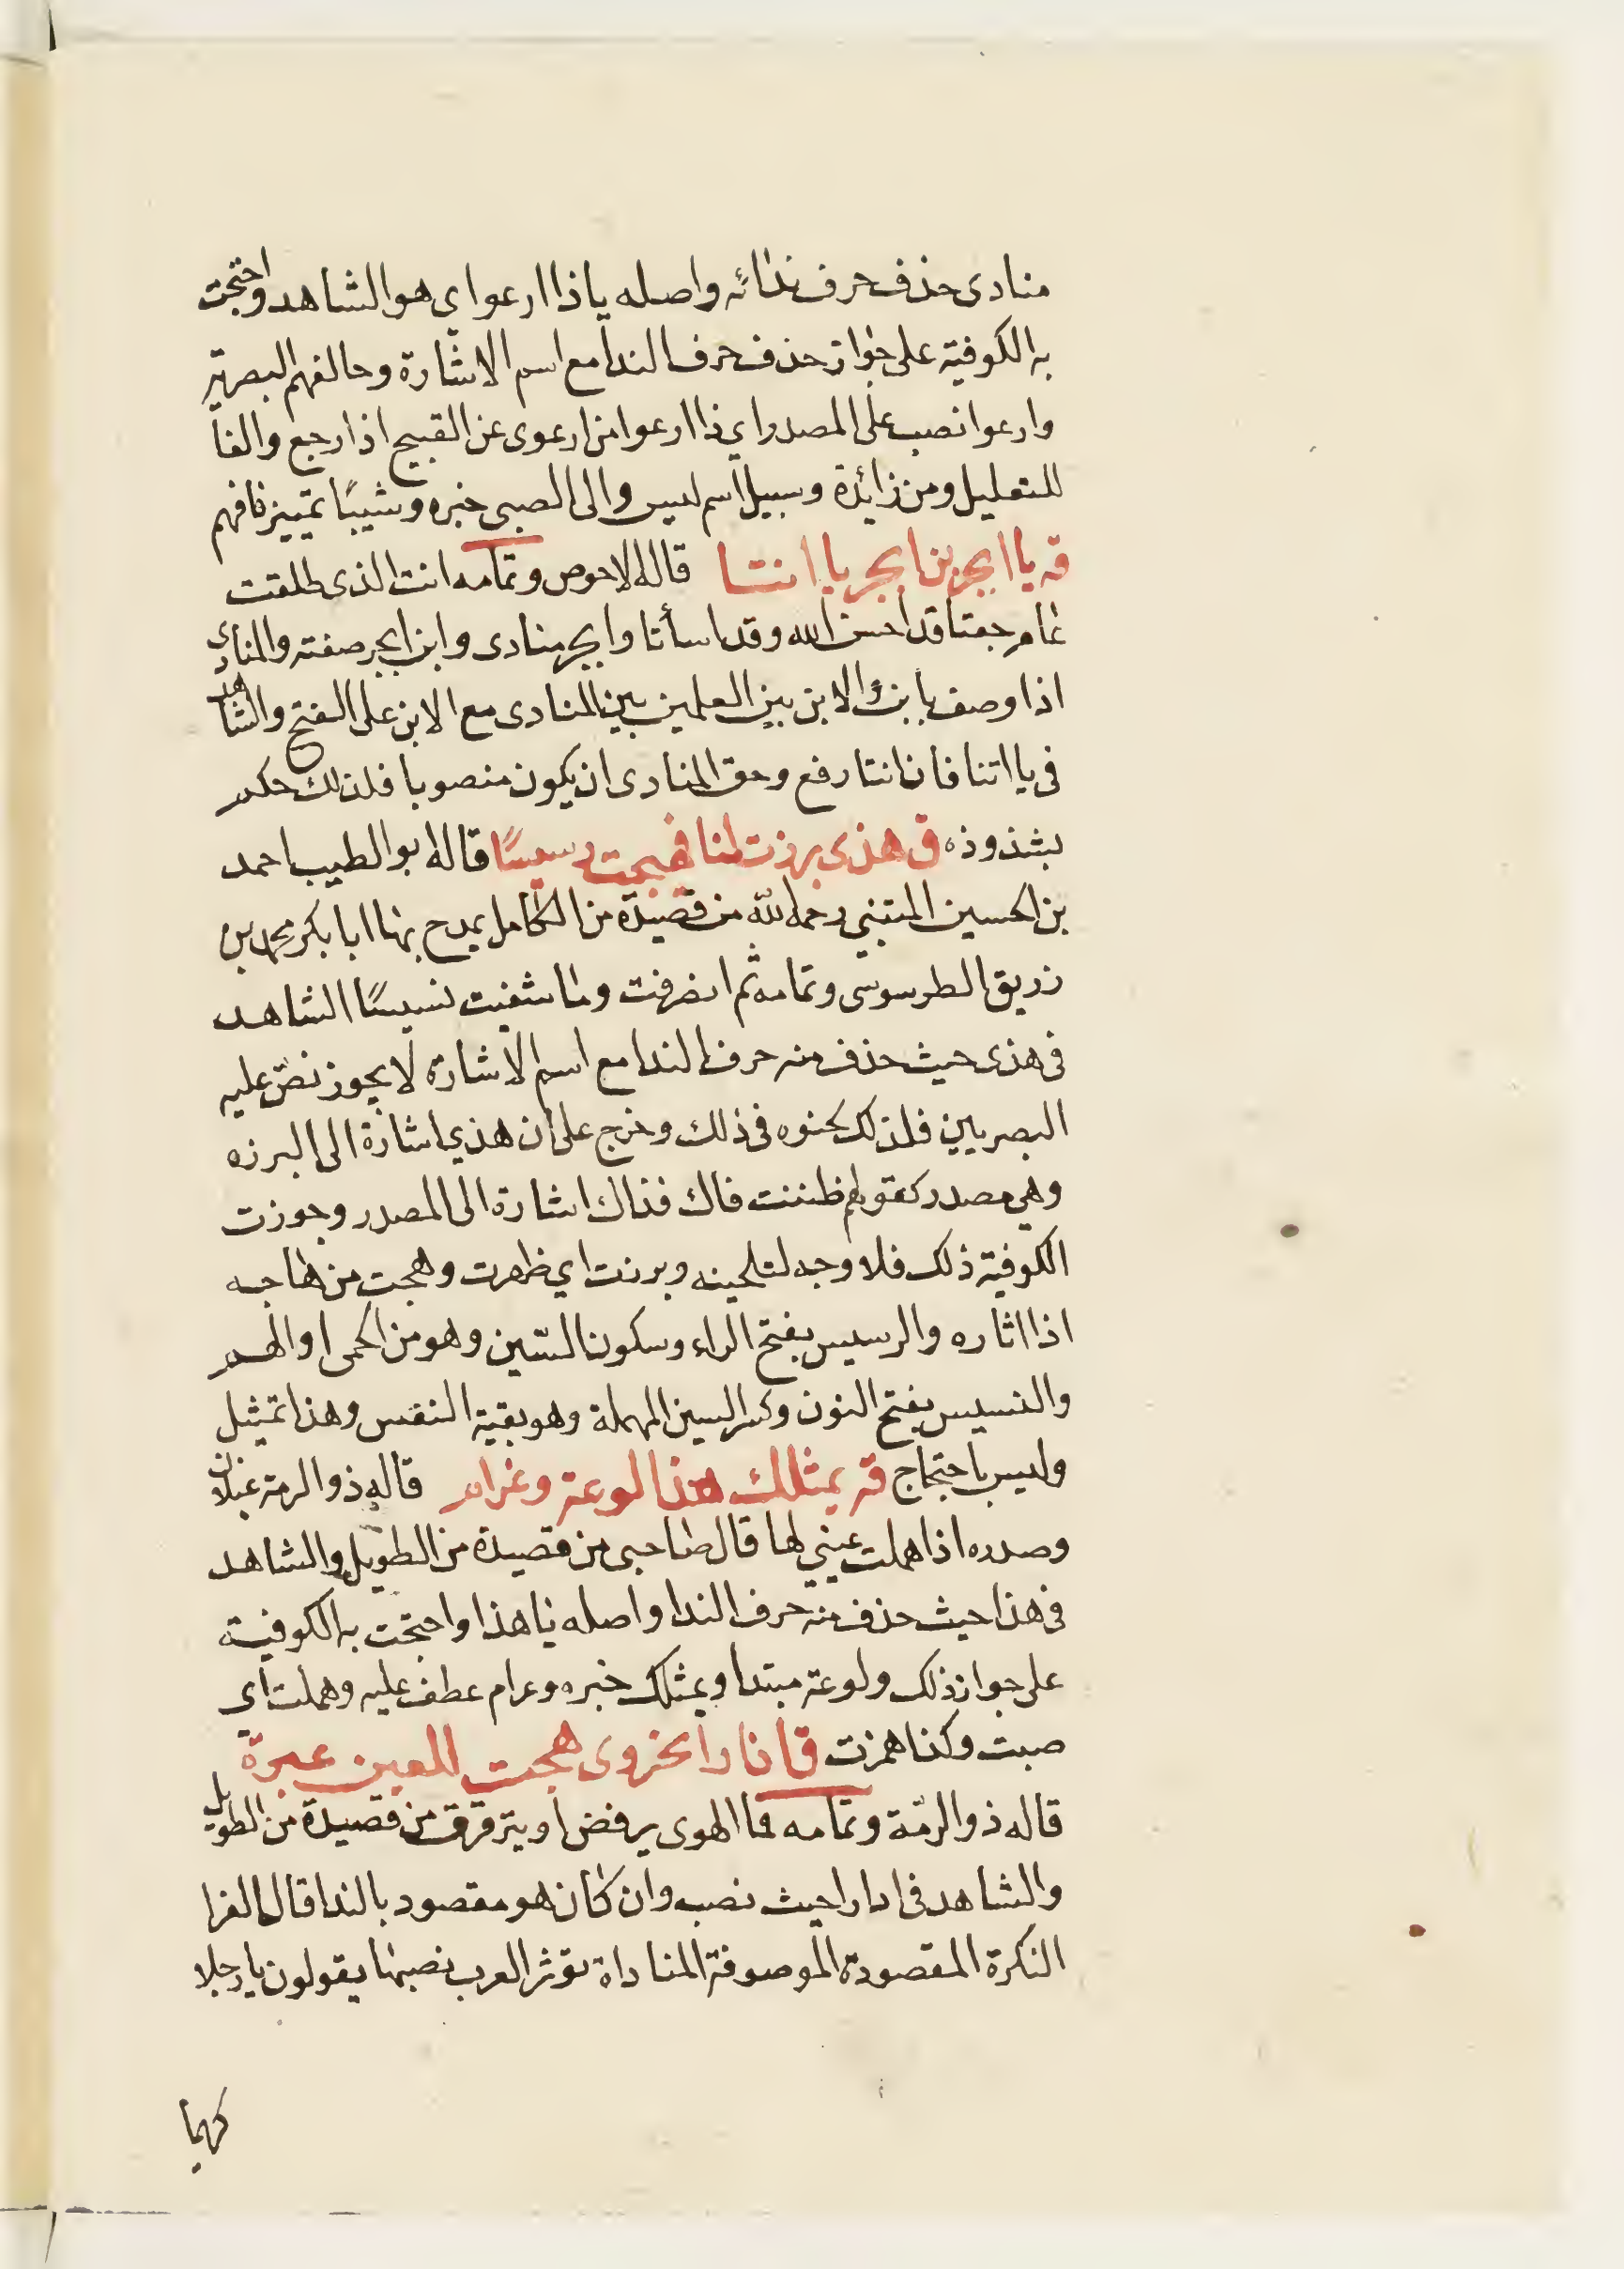 منادى حذف حرف ندائه واصله ياذا ارعواى هو الشاهد واحتجت
به الكوفية على جواز حذف حرف الندا مع اسم الاشارة وحالفهم البصرية
وارعوا نصب على المصدر اي ذا ارعوا من ارعوى عن القبيح اذا رجع والفا
للتعليل ومن زائدة وسبيل اسم ليس والى الصبى خبره وشيبًا تمييز فافهم
قه يا ابجر بن ابجر يا انتا قاله الاحوص وتمامه انت الذى طلقت
عام جعتا قد احسن الله وقد اسأتا وابجر منادى وابن ابجر صفته والمنادى
اذا وصف بابن والابن بين العلمين بين المنادى مع الابن على الفتح والشاهد
فى يا انتا فان انتا رفع وحق المنادى ان يكون منصوبا فلذلك حكم
بشذوذه ق هذى برزت لنا فهجت رسيسًا قاله ابو الطيب احمد
بن الحسين المتنبي رحمه الله من قصيدة من الكامل يمدح بها ابا بكر محمد بن
زريق الطرسوسى وتمامه ثم انصرفت وما شفيت نسيسًا الشاهد
فى هذى حيث حذف منه حرف الندا مع اسم الاشارة لا يجوز نص عليه
البصريين فلذلك لحنوه فى ذلك وخرج على ان هذي اشارة الى البرزه
وهي مصدر كقولهم ظننت ذاك فذاك اشارة الى المصدر وجوزت
الكوفية ذلك فلا وجه لتلحينه وبرزت اي ظهرت وهجت من هاجه
اذا اثاره والرسيس بفتح الراء وسكون السّين وهو من الحمى او الهم
والنسيس بفتح النون وكسر السين المهملة وهو بقية النفس وهذا تمثيل
وليس باحتجاج قه بمثلك هذا لوعة وغرام قاله ذو الرمة غيلان
وصدره اذا هملت عيني لها قال صاحبى من قصيدة من الطويل والشاهد
فى هذا حيث حذف منه حرف الندا واصله يا هذا واحتجت به الكوفية
على جواز ذلك ولوعة مبتدا وبمثلك خبره وغرام عطف عليه وهملت اى
صبت وكذا همزت قا نا دا بحزوى هجت للعين عبرة
قاله ذو الرمّة وتمامه فما الهوى يرفض او يترقرق من قصيدة من الطويل
والشاهد فى ادارا حيث نصب وان كان هو مقصود بالندا قال الفرا
النكرة المقصودة الموصوفة المناداة تؤثر العرب نصبها يقولون يا رجلا
كهما